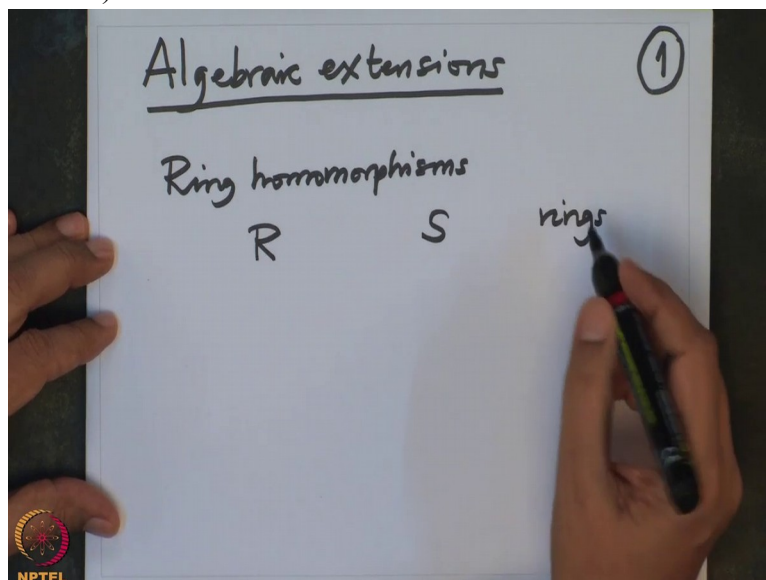 Algebraic extensions
1
Ring homomorphisms
R S rings
NPTEL